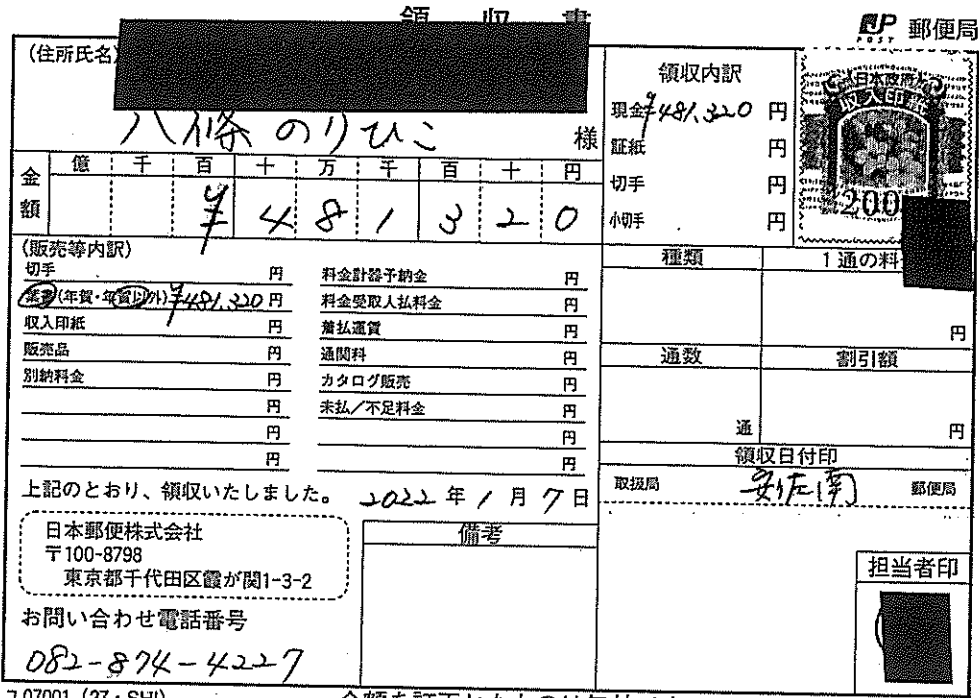 領収書
JP POST 郵便局
(住所氏名)
八條 のりひこ 様
金額 億 千 百 十 万 千 百 十 円
¥ 4 8 1 3 2 0
領収内訳
現金 ¥481,320 円
証紙 円
切手 円
小切手 円
日本政府
収入印紙
200
(販売等内訳)
切手 円
葉書(年賀・年賀以外) ¥481,320 円
収入印紙 円
販売品 円
別納料金 円
円
円
円
料金計器予納金 円
料金受取人払料金 円
着払運賃 円
通関料 円
カタログ販売 円
未払/不足料金 円
円
円
種類 1通の料
円
通数 割引額
通 円
領収日付印
取扱局 安佐南 郵便局
上記のとおり、領収いたしました。 2022年1月7日
日本郵便株式会社
〒100-8798
東京都千代田区霞が関1-3-2
お問い合わせ電話番号
082-874-4227
備考
担当者印